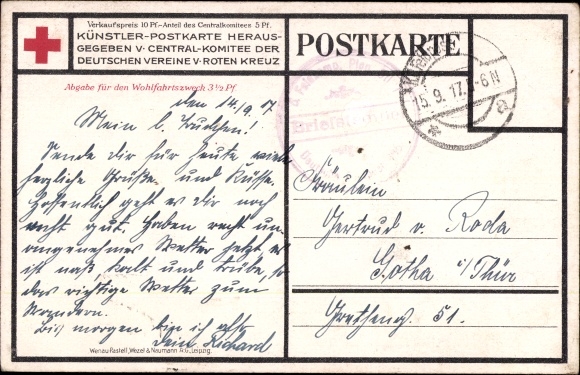 Verkaufspreis 10 Pf.-Anteil des Centralkomitees 5 Pf.
KÜNSTLER-POSTKARTE HERAUS-
GEGEBEN V. CENTRAL-KOMITEE DER
DEUTSCHEN VEREINE V. ROTEN KREUZ
POSTKARTE
Abgabe für den Wohlfahrtszweck 3½ Pf.
15.9.17. 5-6N
a
Briefst
den 14./9. 17
Mein l. Trudchen!
Sende dir für heute viele
herzliche Grüße und Küsse.
Hoffentlich geht es dir noch
recht gut. Haben recht un-
angenehmes Wetter jetzt es
ist naß, kalt und trübe, so
das richtige Wetter zum
Wandern.
Bis morgen bin ich
dein Richard
Fräulein
Gertrud v. Roda
Gotha i/Thür
51.
Wenau-Pastell, Wezel & Naumann A.G., Leipzig.